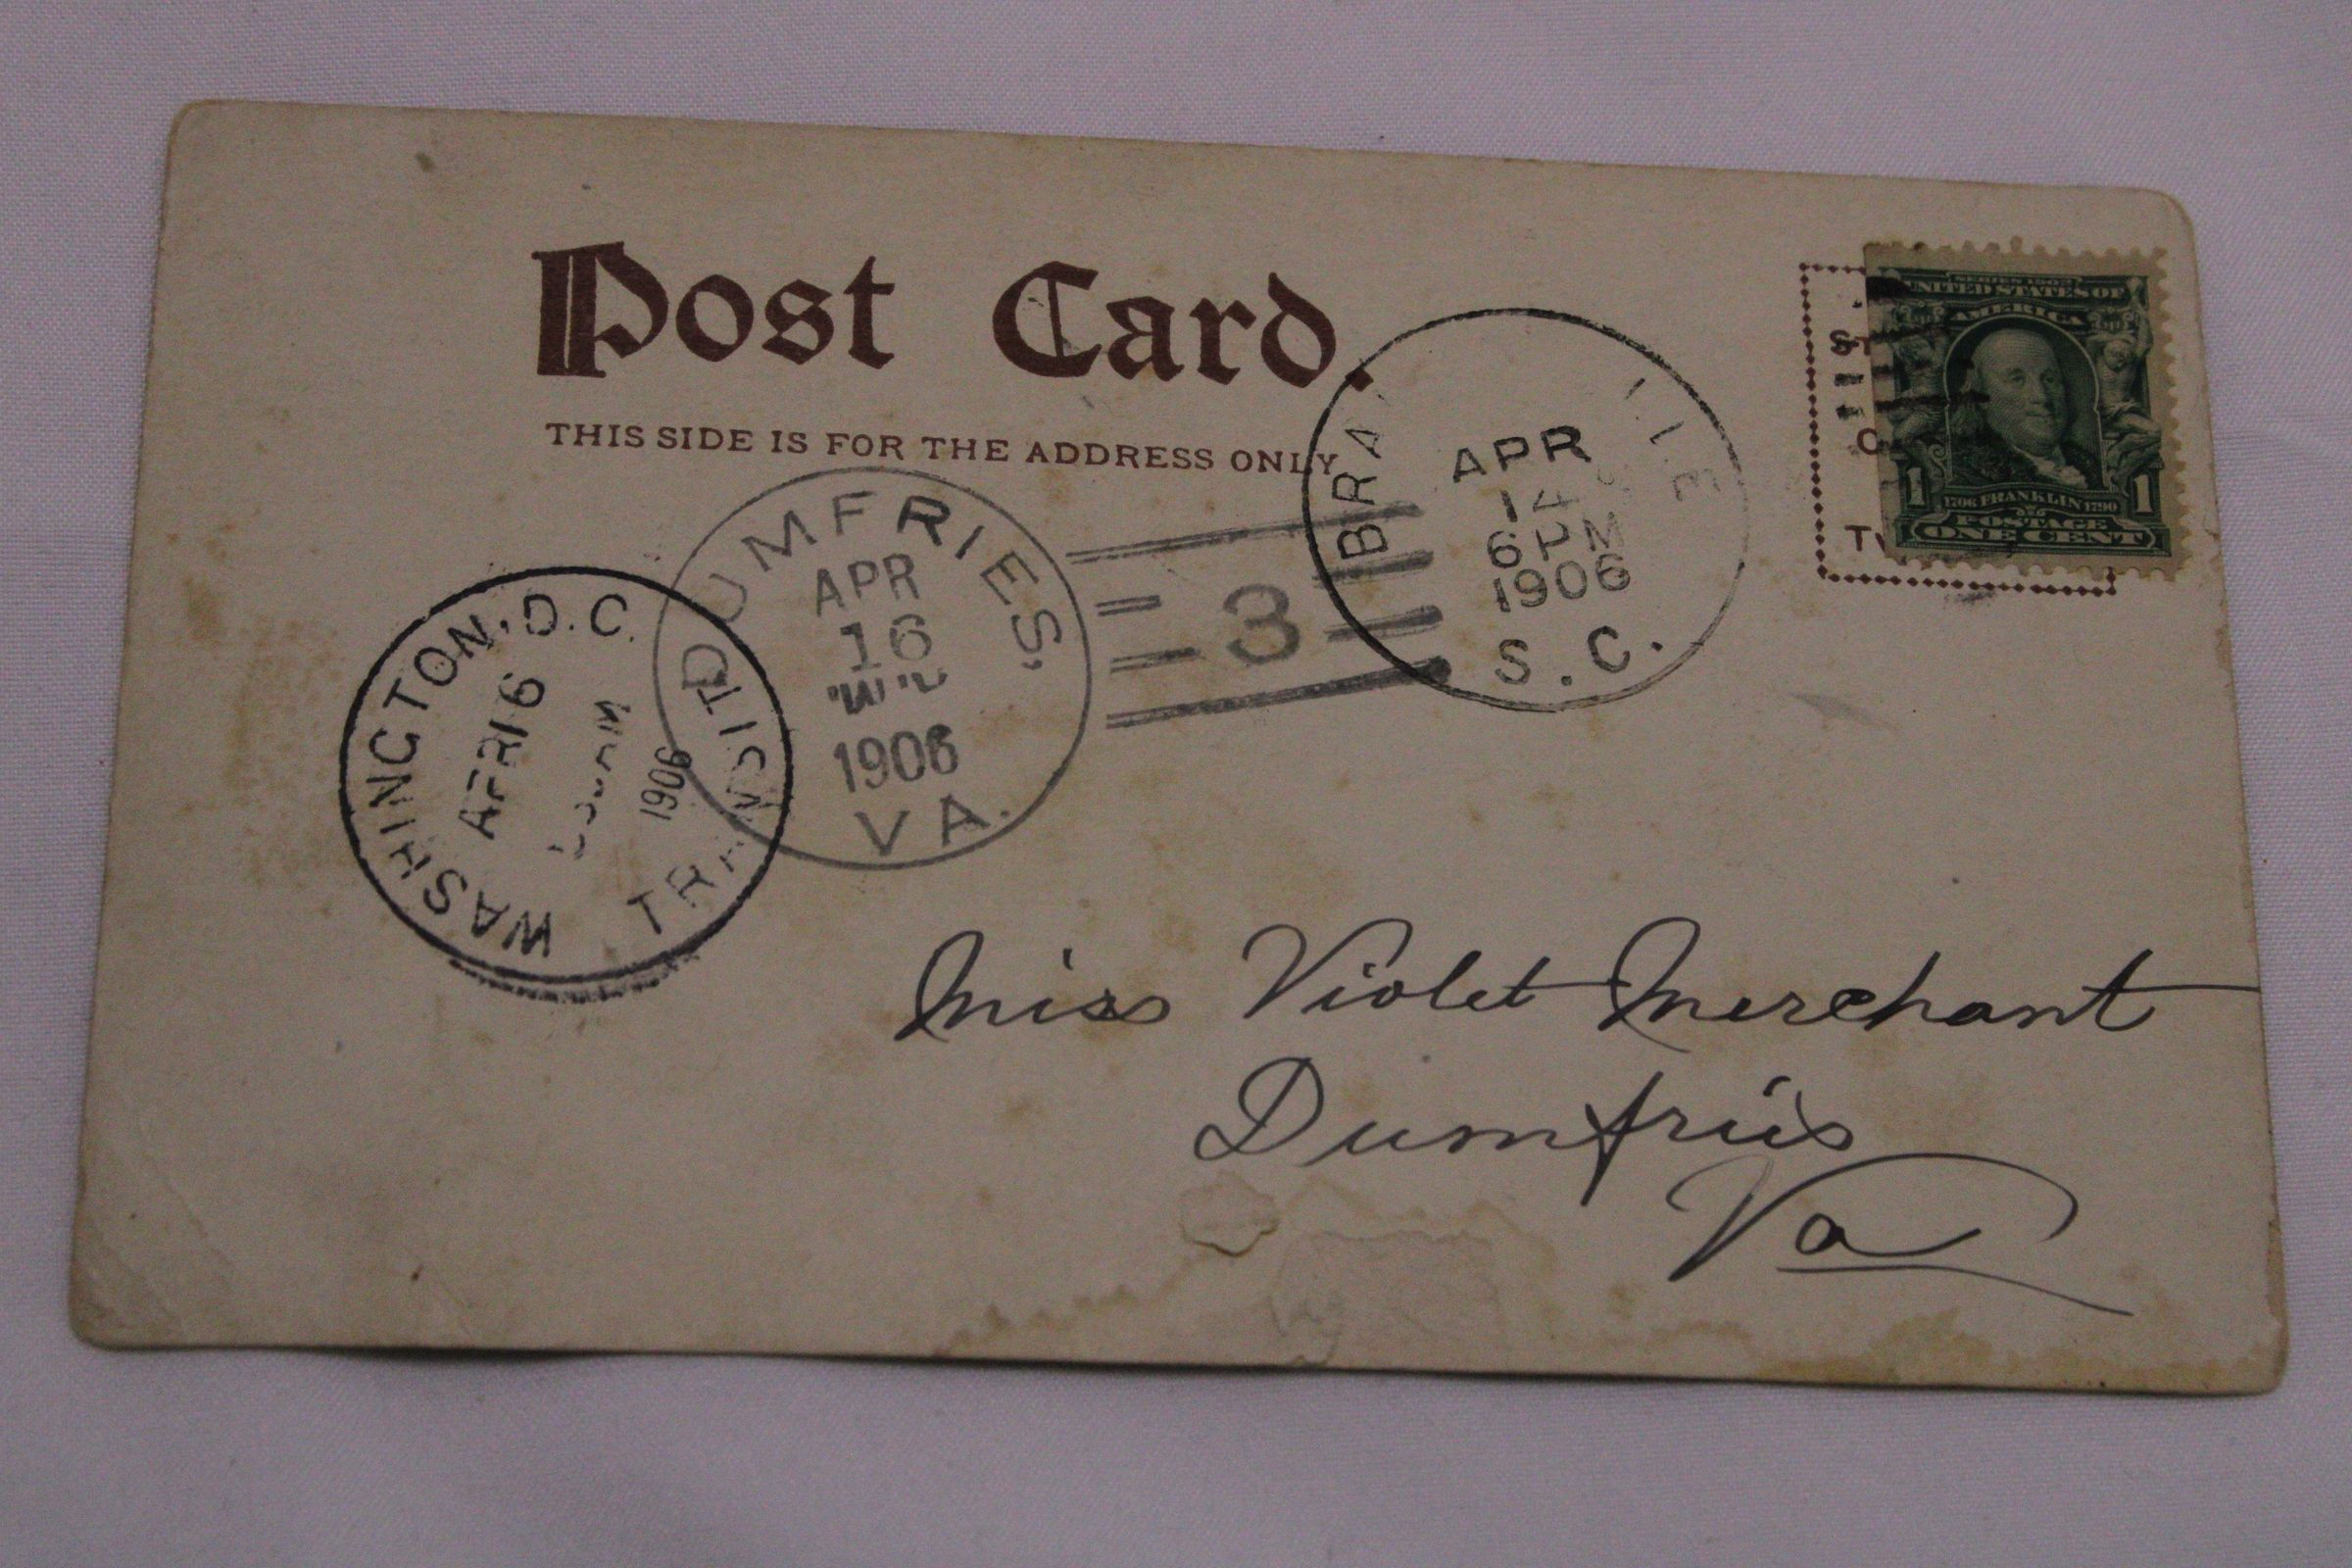 Post Card.
THIS SIDE IS FOR THE ADDRESS ONLY
SERIES 1902
UNITED STATES OF
AMERICA
1706 FRANKLIN 1790
1 POSTAGE 1
ONE CENT
S. C.
APR
14
6 PM
1906
DUMFRIES,
APR
16
1906
VA.
3
WASHINGTON, D.C.
APR 16
1906
TRANSIT
Miss Violet Merchant
Dumfries
Va